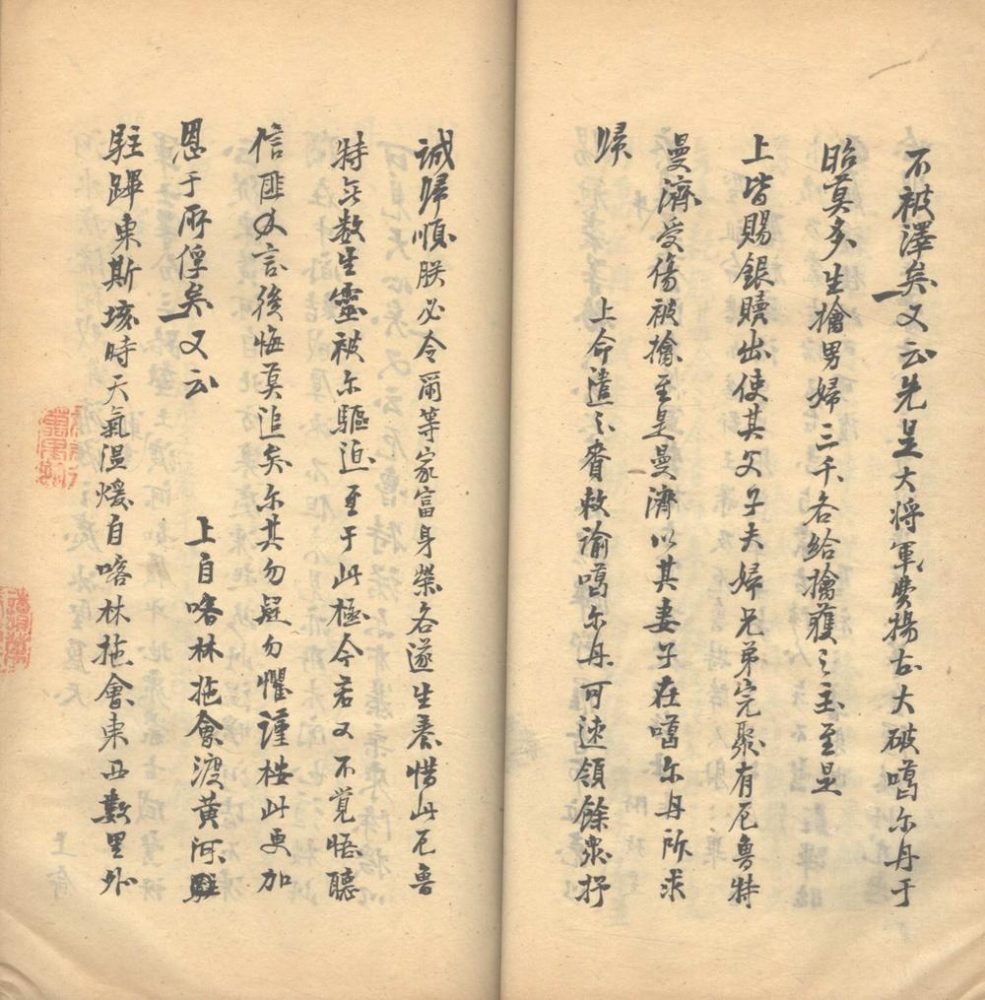 不被澤矣又云先是大將軍費揚古大破噶尔丹于
昭莫多生擒男婦三千各給擒獲之主至是
上皆賜銀贖出使其父子夫婦兄弟完聚有厄魯特
曼濟受傷被擒至是曼濟以其妻子在噶尔丹所求
歸 上命遣之賫敕諭噶尔丹可速領餘衆抒
誠歸順朕必令爾等家富身榮各遂生養惜此厄魯
特無数生靈被尔驅迫至于此極今若又不覺悟聽
信匪人言後悔莫追矣尔其勿疑勿懼謹
此更加
恩于所俘矣又云
上自喀林拖會渡黄河駐
駐蹕東斯垓時天氣温煖自喀林拖會東西數里外